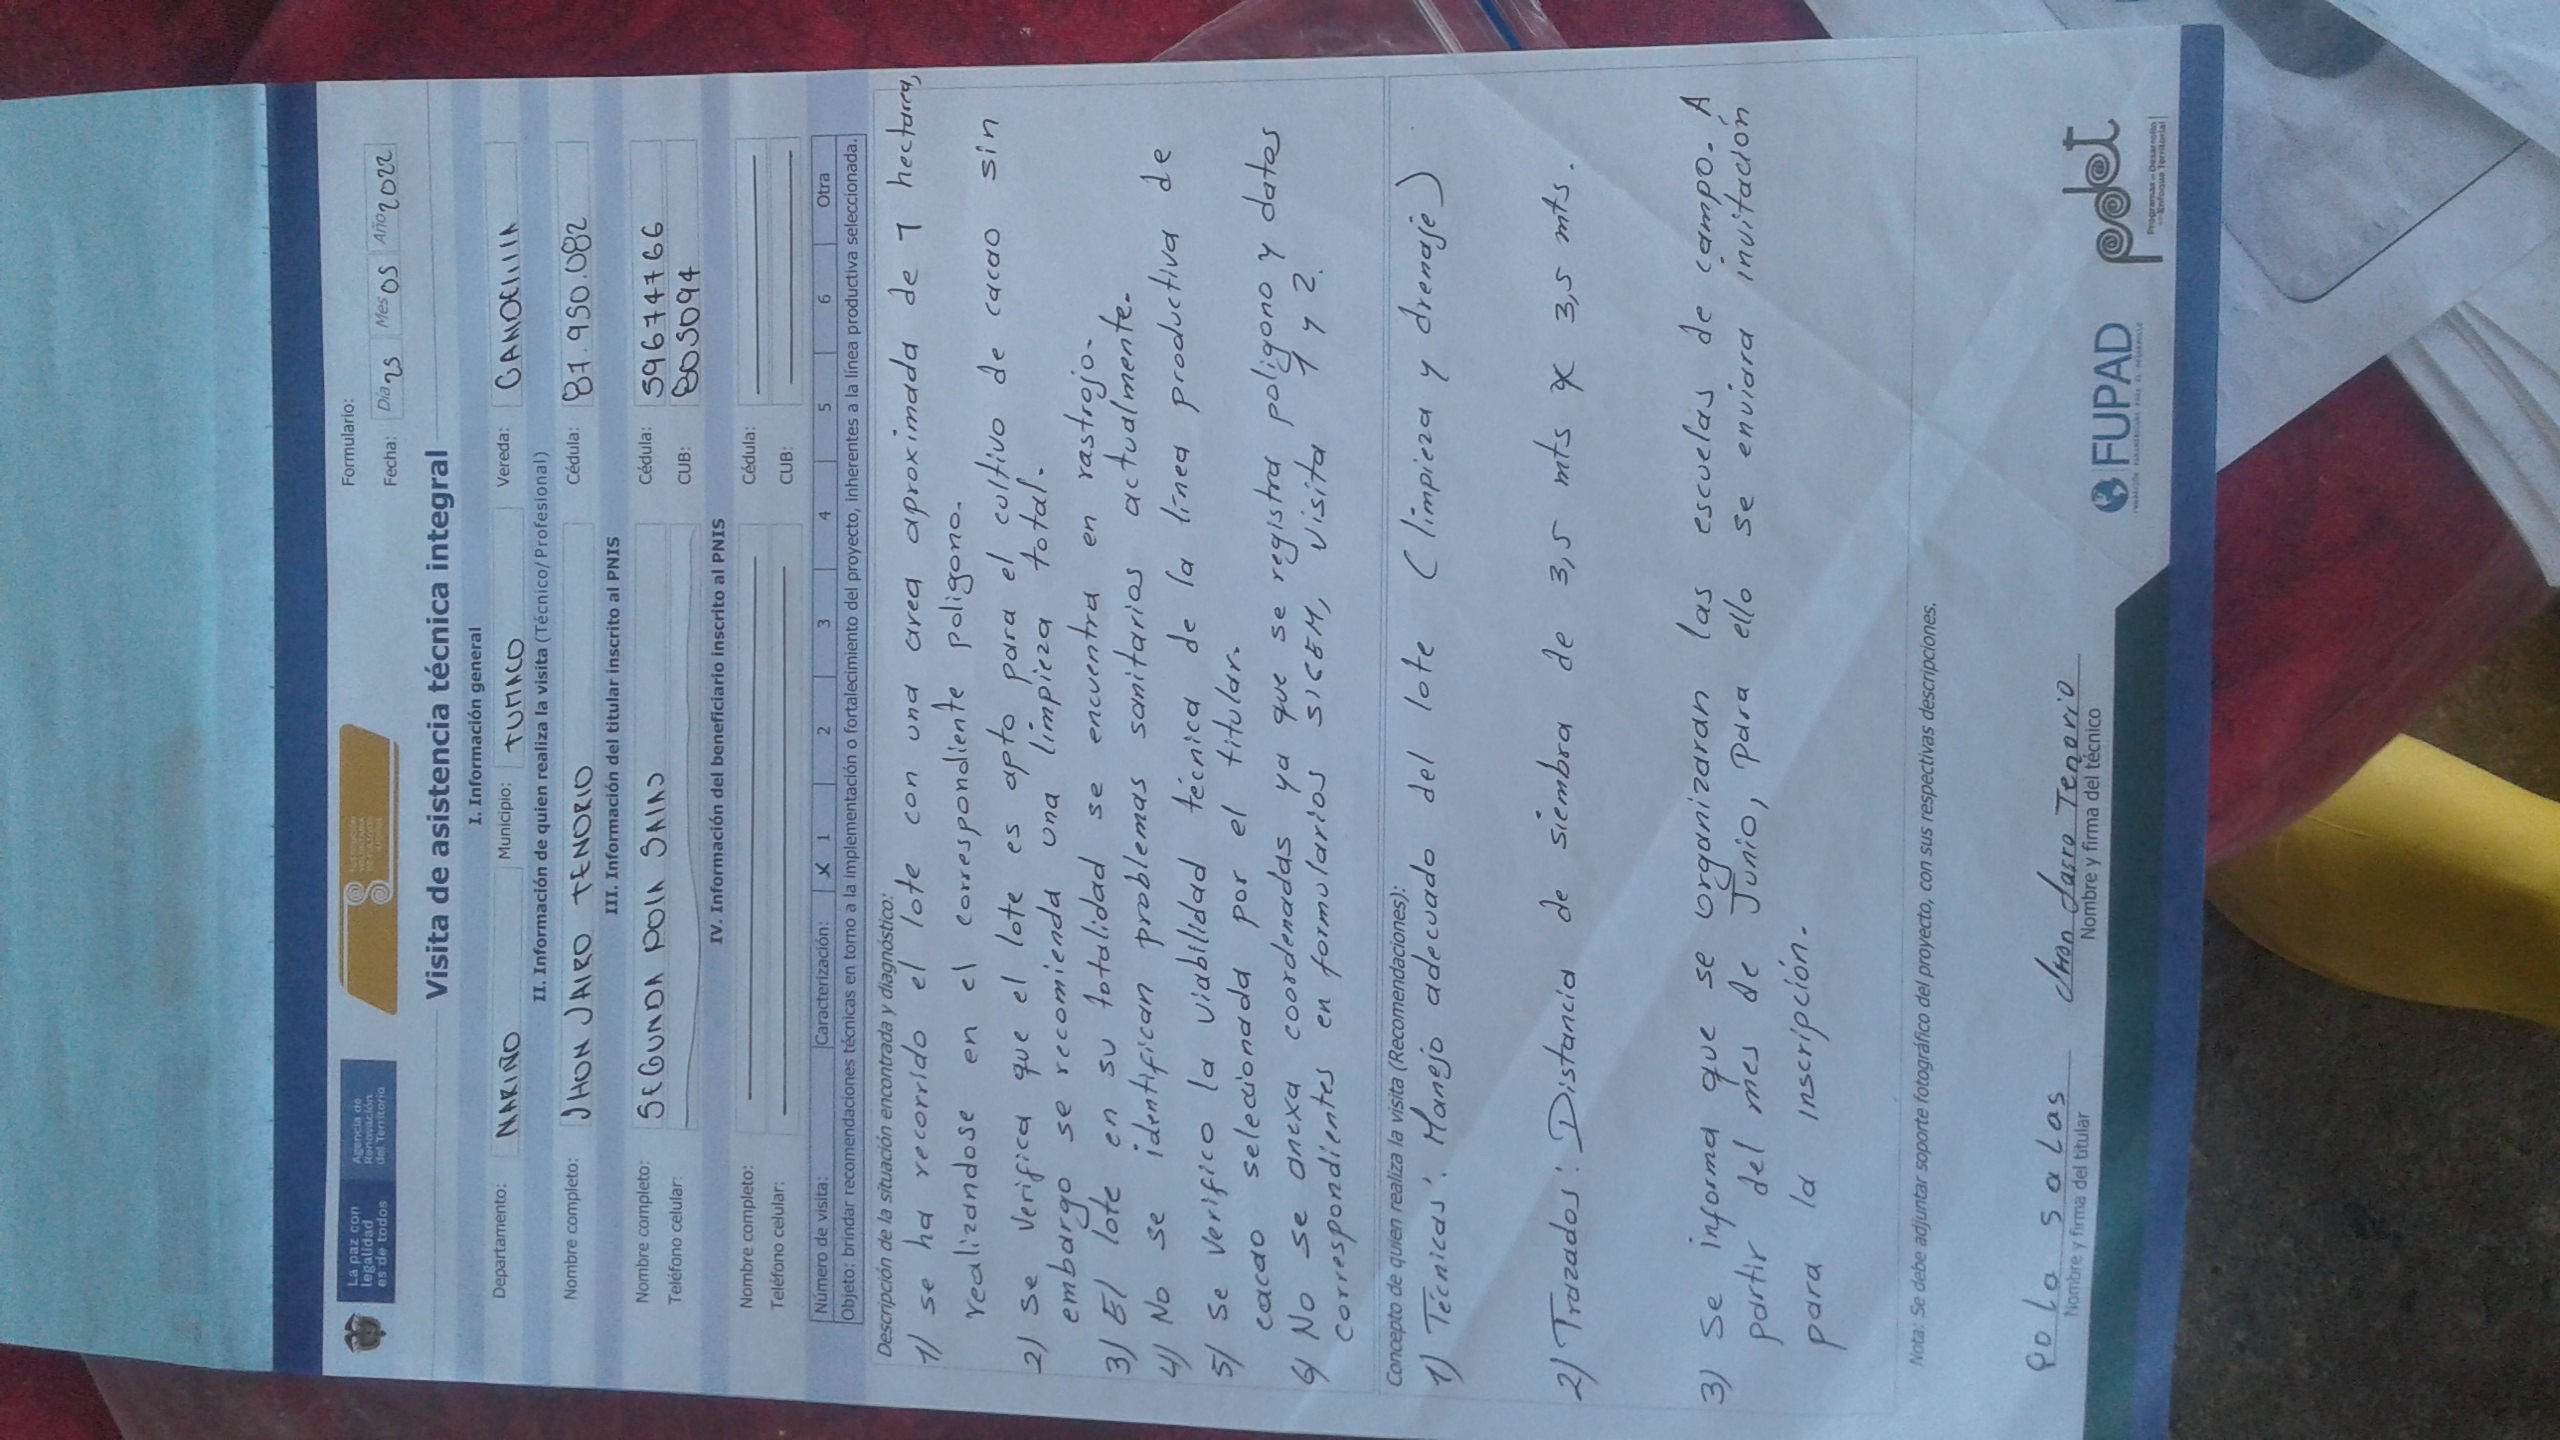 La paz con
legalidad
es de todos
Agencia de
Renovación
del Territorio
Formulario:
Fecha: Día 25 Mes 05 Año 2022
Visita de asistencia técnica integral
I. Información general
Departamento: NARIÑO Municipio: TUMACO Vereda: CANDELILLA
II. Información de quien realiza la visita (Técnico/ Profesional)
Nombre completo: JHON JAIRO TENORIO Cédula: 87.950.082
III. Información del titular inscrito al PNIS
Nombre completo: SEGUNDA POLA SALAS Cédula: 59674766
Teléfono celular: CUB: 805094
IV. Información del beneficiario inscrito al PNIS
Nombre completo: Cédula:
Teléfono celular: CUB:
Número de visita: Caracterización: X 1 2 3 4 5 6 Otra
Objeto: brindar recomendaciones técnicas en torno a la implementación o fortalecimiento del proyecto, inherentes a la línea productiva seleccionada.
Descripción de la situación encontrada y diagnóstico:
1) se ha recorrido el lote con una area aproximada de 1 hectarea,
realizandose en el correspondiente poligono.
2) Se verifica que el lote es apto para el cultivo de cacao sin
embargo se recomienda una limpieza total.
3) El lote en su totalidad se encuentra en rastrojo.
4) No se identifican problemas sanitarios actualmente.
5) Se verifico la viabilidad técnica de la línea productiva de
cacao seleccionada por el titular.
6) No se anexa coordenadas ya que se registra poligono y datos
correspondientes en formularios SICEM, visita 1 y 2.
Concepto de quien realiza la visita (Recomendaciones):
1) Técnicas: Manejo adecuado del lote (limpieza y drenaje)
2) Trazados: Distancia de siembra de 3,5 mts x 3,5 mts.
3) Se informa que se organizaran las escuelas de campo. A
partir del mes de Junio, para ello se enviara invitación
para la inscripción.
Nota: Se debe adjuntar soporte fotográfico del proyecto, con sus respectivas descripciones.
Pola salas Jhon Jairo Tenorio
Nombre y firma del titular Nombre y firma del técnico
FUPAD
pdet
Programas de Desarrollo
con Enfoque Territorial